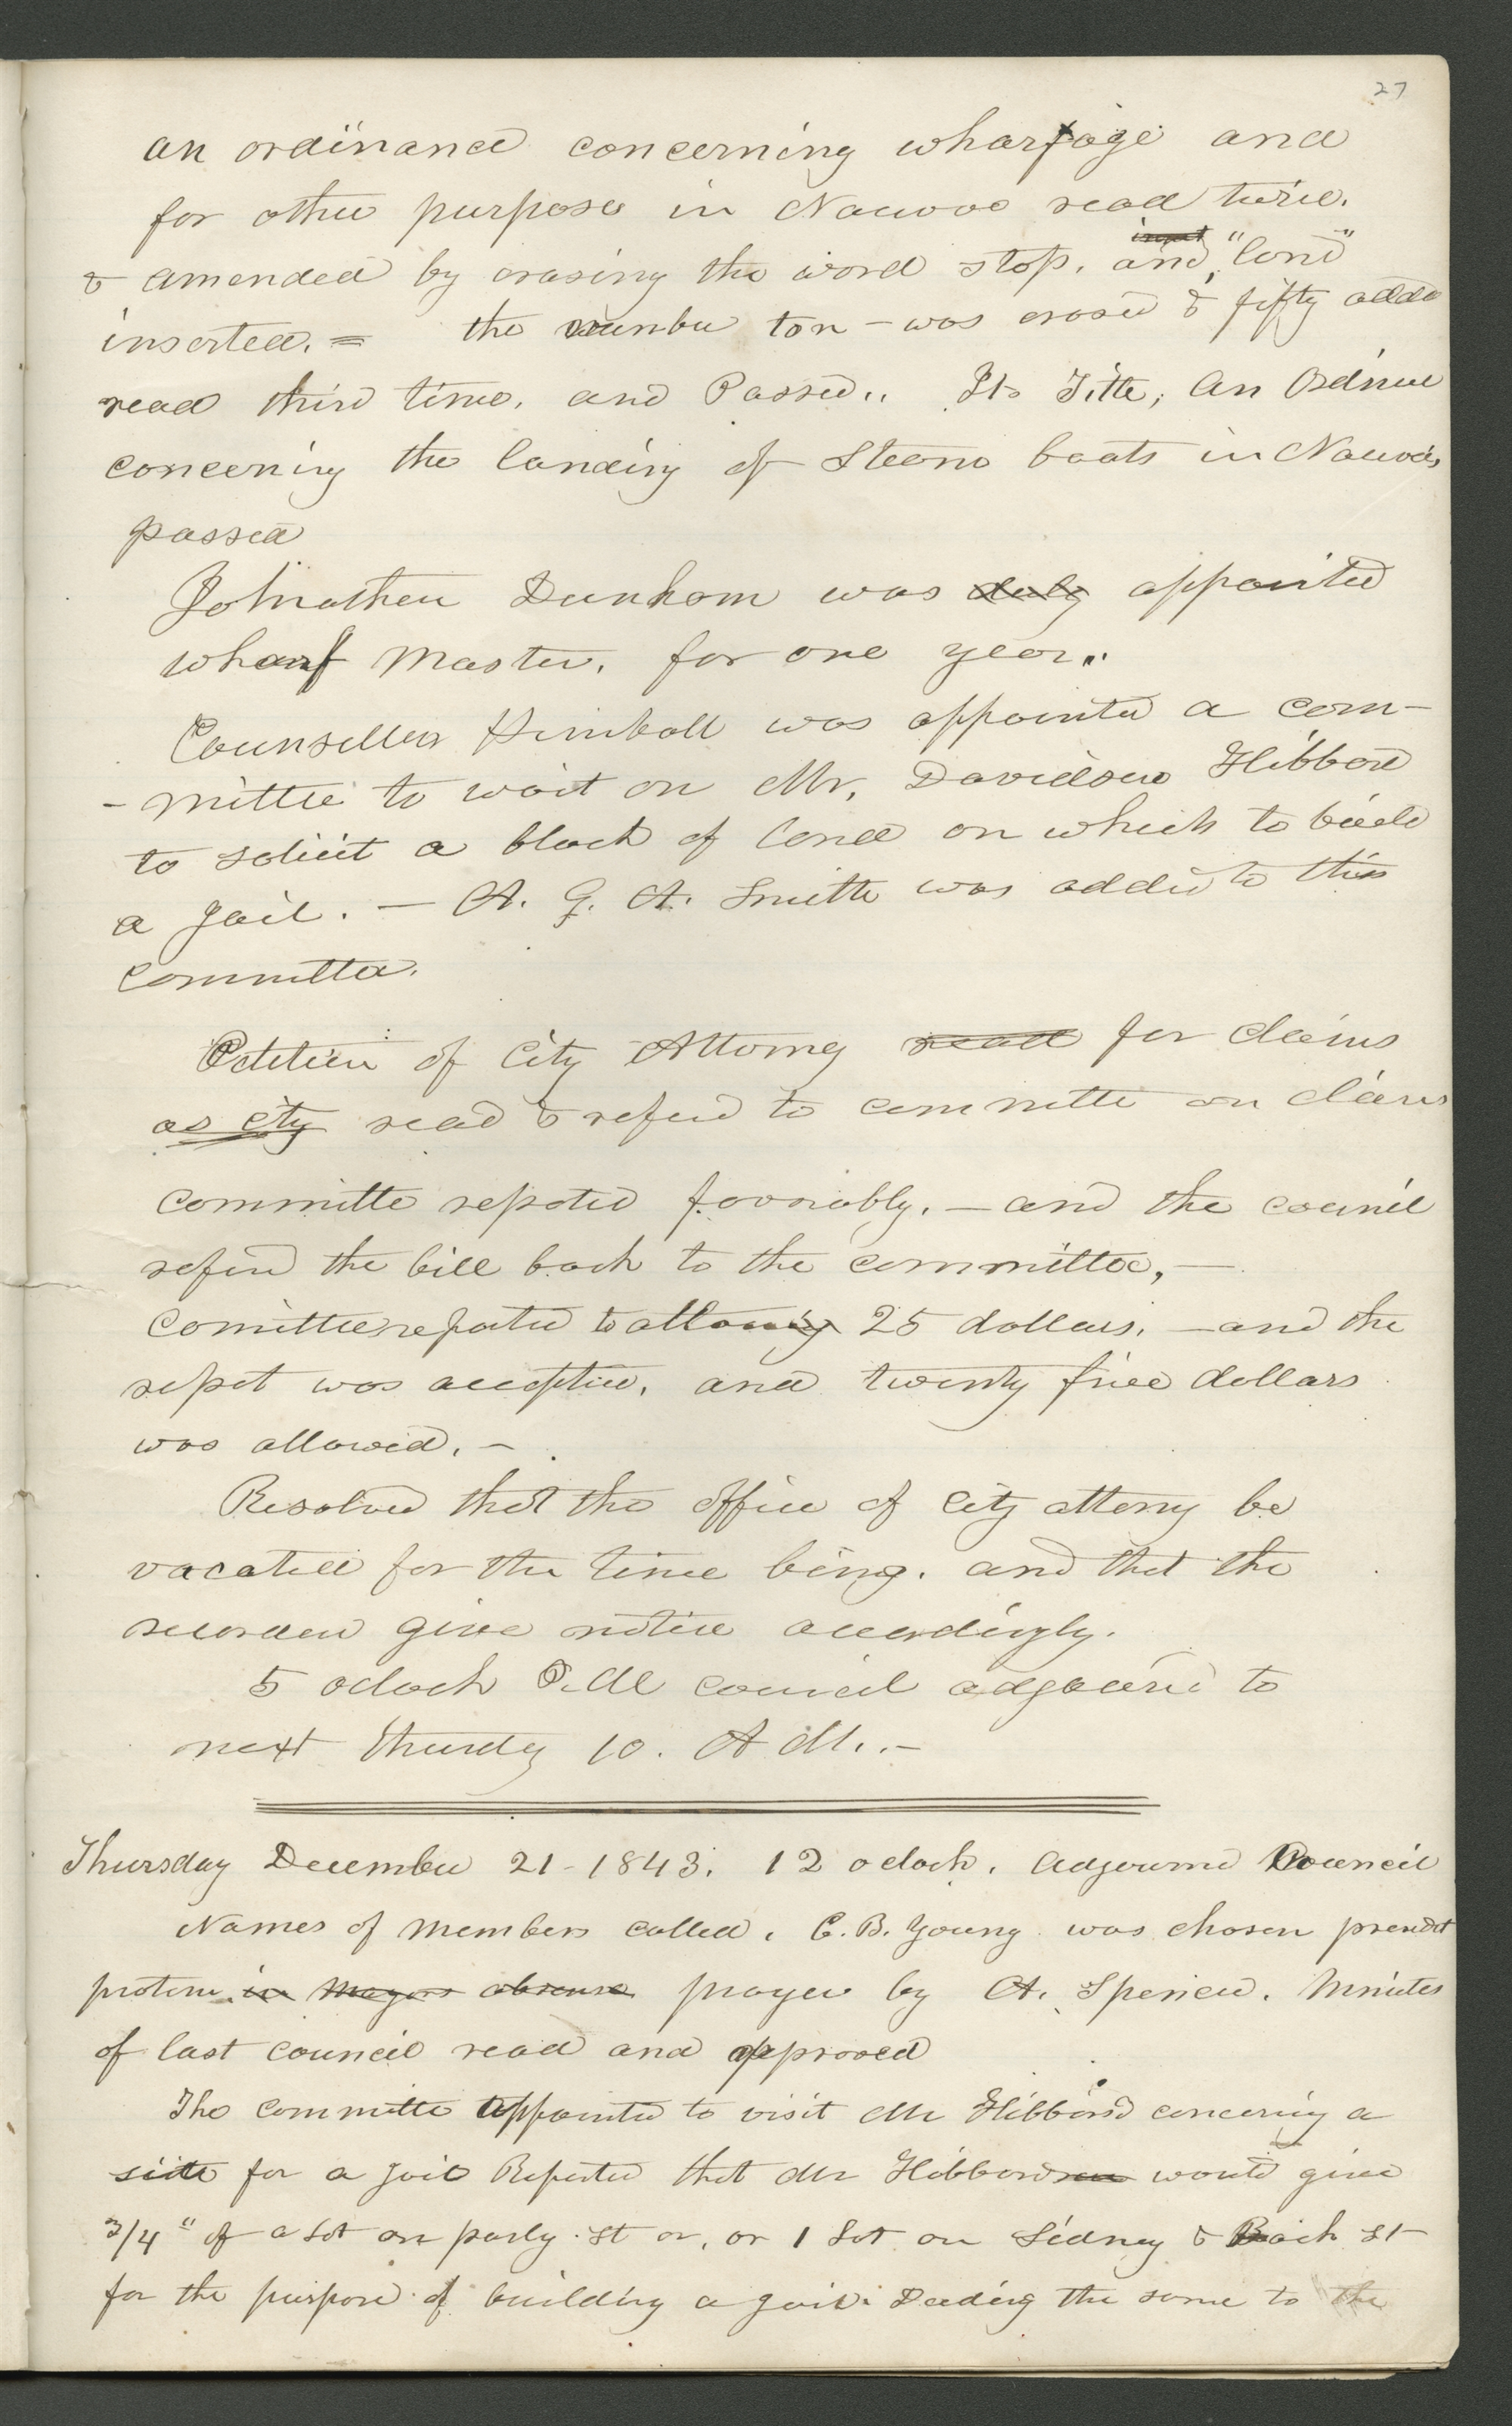 27
an ordinance concerning wharfage and
for other purposes in Nauvoo read twice.
& amended by erasing the word stop. and, "land"
inserted. = the number ten - was erased & fifty added
read third time. and Passed.. Its Title, An Ordince
concerning the landing of Steam boats in Nauvoo,
passed
Johnathan Dunham was duly appointed
wharf Master. for one year..
Counsellor Kimball was appointed a com-
-mittee to wait on Mr. Davidson Hibbard
to solicit a block of land on which to build
a Jail. — A. G. A. Smith was added to this
committee.
Petition of City Attorney read for claims
as city read & referd to committe on claims
committe repoted favorably. — and the council
referd the bill back to the committee, —
Comittee reported to allowing 25 dollars. — and the
repot was accepted. and twenty five dollars
was allowed. —
Resolved that the office of City attorny be
vacated for the time being. and that the
recorder give notice accordingly.
5 oclock P.M council adjournd to
next thursdy 10. A M. . —
Thursday December 21 - 1843. 12 oclock. adjournd Council
Names of members called. B. Young was chosen presedt
protem in Mayors absence prayer by A. Spencer. Minutes
of last council read and approved
The committe appointed to visit Mr Hibbard concering a
site for a Jail Reported that Mr Hibbard would give
3/4" of a Lot on parly. st or, or 1 Lot on Sidney & Bain St
for the purpose of building a jail. Deeding the same to the